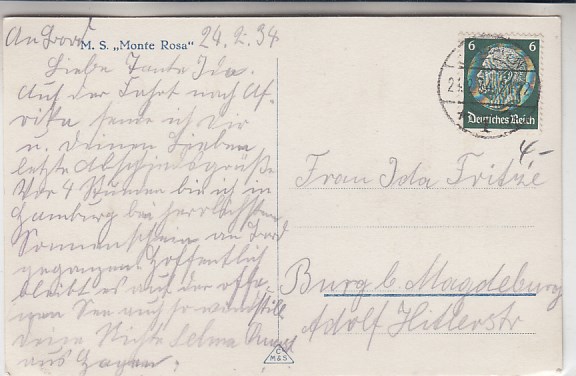 An Bord M. S. „Monte Rosa" 24.2.34
Liebe Tante Ida.
Auf der Fahrt nach Af-
rika sende ich Dir
u. Deinen Lieben
letzte Abschiedsgrüße
Vor 4 Stunden bin ich in
Hamburg bei herrlichstem
Sonnenschein an Bord
gegangen. Hoffentlich
bleibt es auf der offe-
nen See auch so windstill
Deine Nichte Selma
aus Hagen.
6 6
Deutsches Reich
4,-
Frau Ida Fritze
Burg b. Magdeburg
Adolf Hitlerstr
M&S